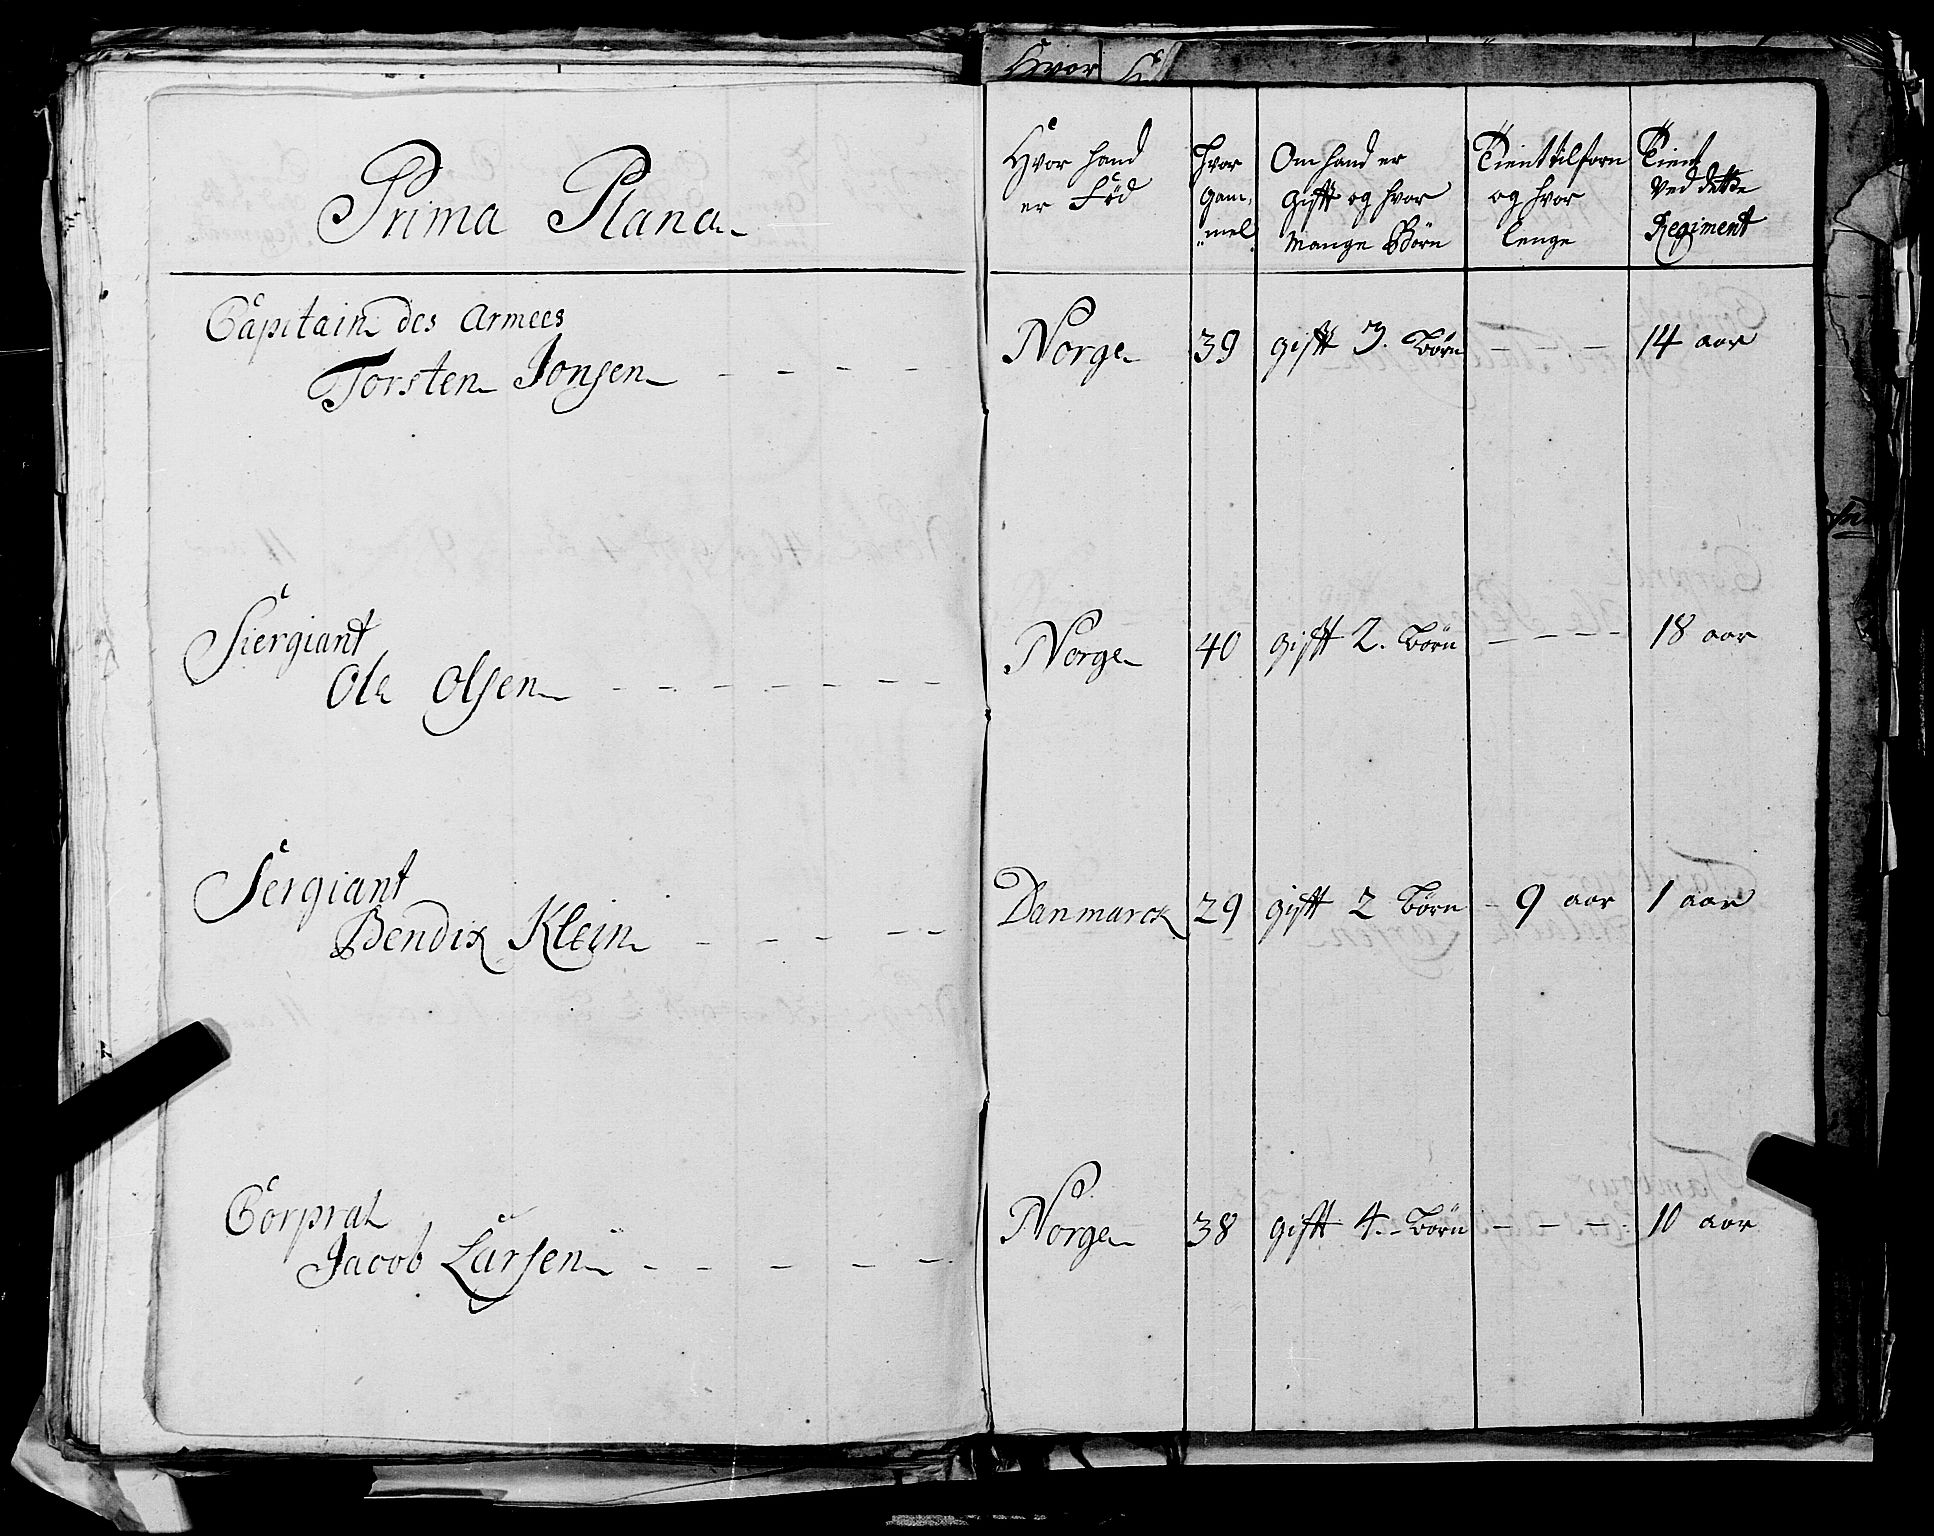 Prima Plana
Hvor hand
er Fød
Hvor
gam,
mel
Om hand er
gift og hvor
Mange Børn
Tient tilforn
og hvor
lenge
Tient
ved dette
Regiment
Capitain des Armees
Torsten Jonsen - - - - -
Norge
39
gift 3. Børn
- - -
14 aar
Siergiant
Ole Olsen - - - - - - -
Norge
40
gift 2. Børn
- - - -
18 aar
Sergiant
Bendix Klein - - - - -
Danmarck
29
gift 2 Børn
- 9 aar
1 aar
Corpral
Jacob Larsen - - - - -
Norge
38
gift 4.- Børn
- - -
10 aar